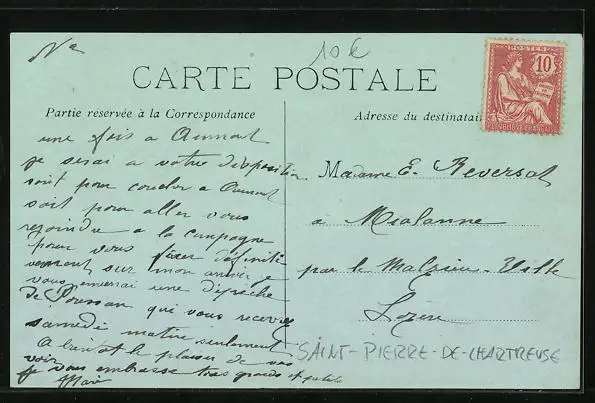 No
10€
CARTE POSTALE
Partie réservée à la Correspondance
Adresse du destinataire
POSTES
10
REPUBLIQUE FRANÇAISE
une fois a Aumont
je serai a votre disposition
soit pour coucher a Aumont
soit pour aller vous
rejoindre a la campagne
pour vous fixer définiti
vement sur mon arrivée
vous enverrai une dépêche
de qui vous recevrez
samedi matin seulement
A bientot le plaisir de vous
voir
je vous embrasse tous grands et petits
Marie
Madame E. Reversat
a Mialanne
par le Malzieu-Ville
Lozère
SAINT-PIERRE-DE-CHARTREUSE